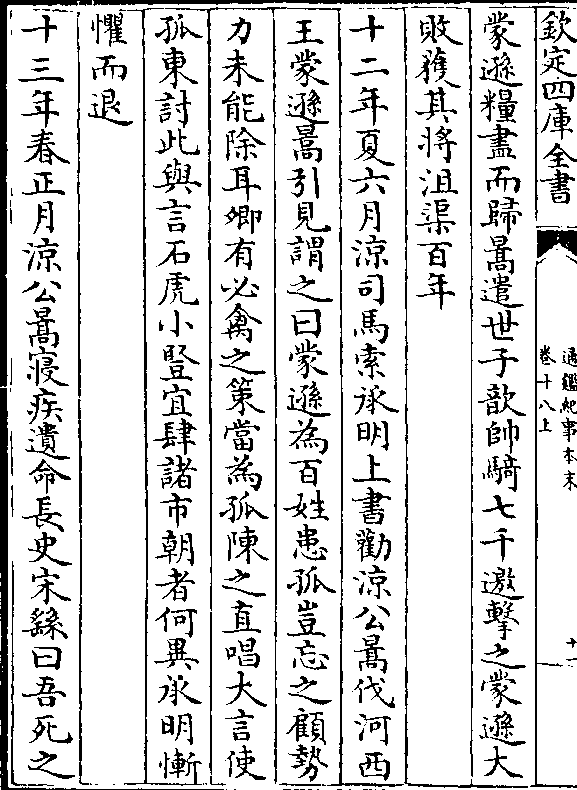 欽定四庫全書
通鑑紀事本末
卷十八上
十一
蒙遜糧盡而歸暠遣世子歆帥騎七千邀擊之蒙遜大
敗獲其將沮渠百年
十二年夏六月涼司馬索承明上書勸涼公暠伐河西
王蒙遜暠引見謂之曰蒙遜為百姓患孤豈忘之顧勢
力未能除耳卿有必禽之策當為孤陳之直唱大言使
孤東討此與言石虎小豎宜肆諸市朝者何異承明慚
懼而退
十三年春正月涼公暠寢疾遺命長史宋繇曰吾死之